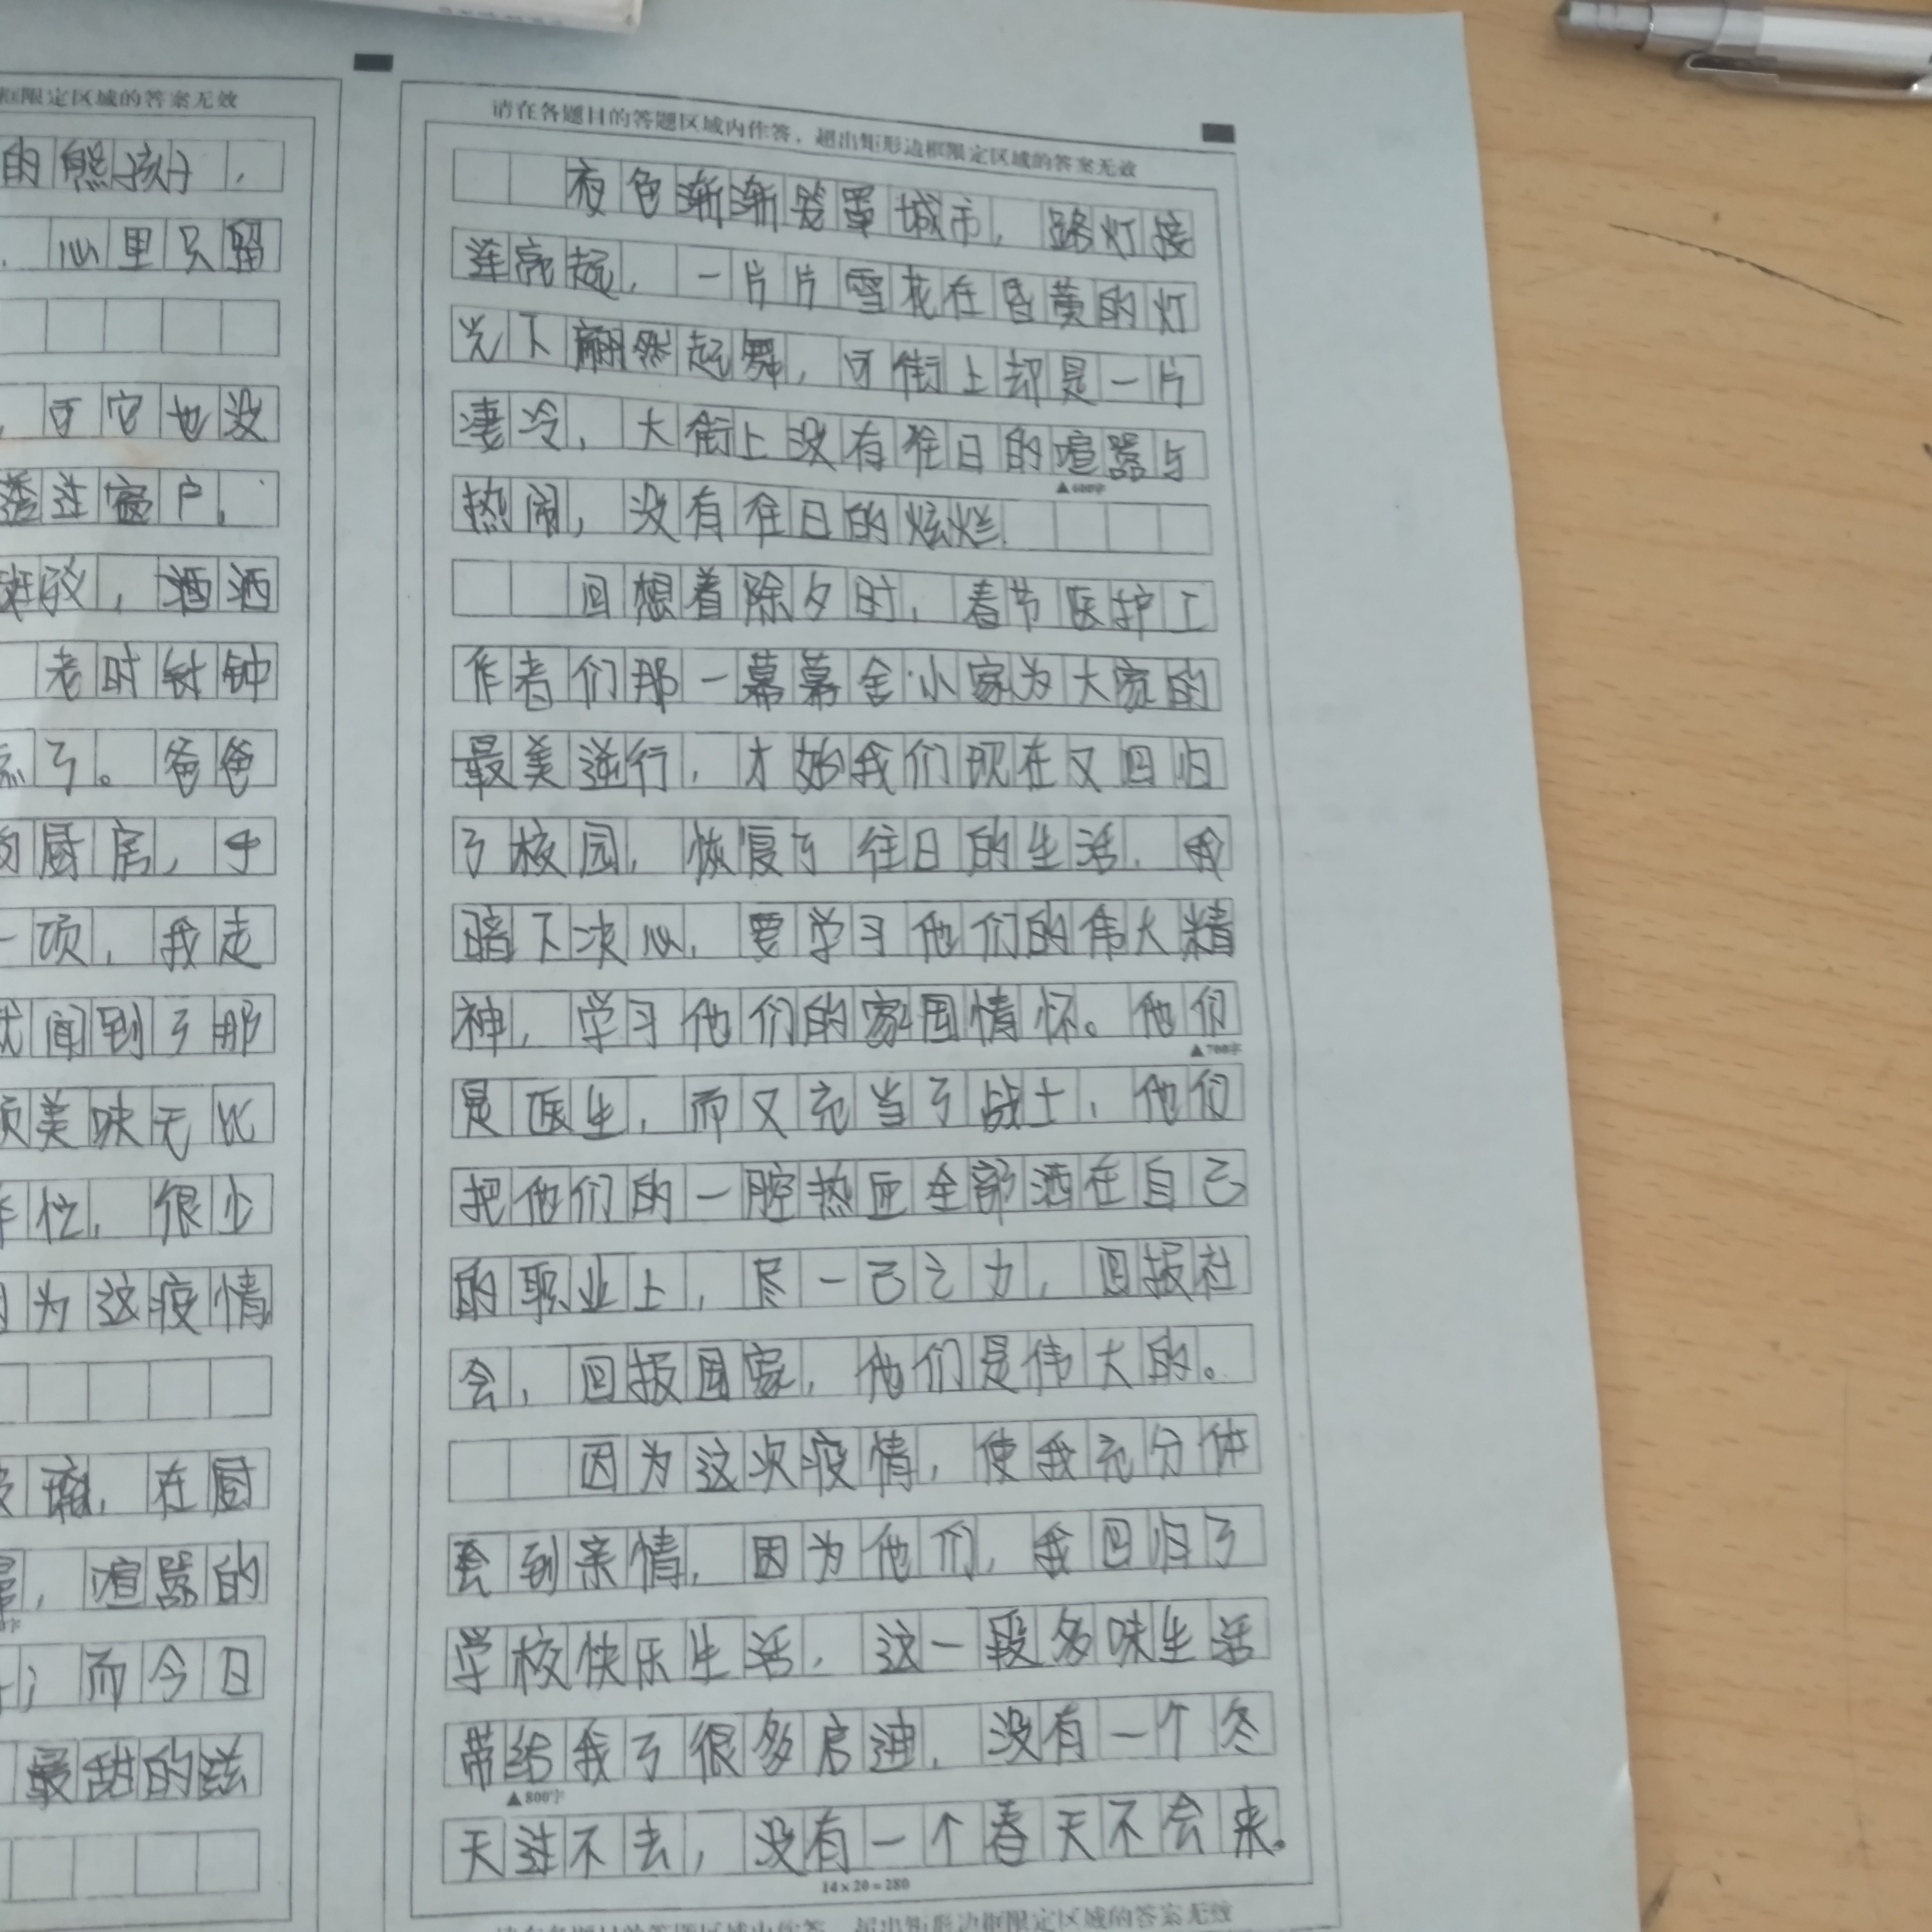 框限定区域的答案无效
的熊孩子，
，心里只留
，可它也没
透过窗户，
斑驳，洒洒
老时针钟
了。爸爸
的厨房，手
一顿，我走
就闻到了那
顿美味无比
作忙，很少
因为这疫情
璃，在厨
，喧嚣的
；而今日
最甜的滋
请在各题目的答题区域内作答，超出矩形边框限定区域的答案无效
夜色渐渐笼罩城市，路灯接
连亮起，一片片雪花在昏黄的灯
光下翩然起舞，可街上却是一片
凄冷，大街上没有往日的喧嚣与
▲600字
热闹，没有往日的炫烂.
回想着除夕时，春节医护工
作者们那一幕幕舍小家为大家的
最美逆行，才始我们现在又回归
了校园，恢复了往日的生活，我
暗下决心，要学习他们的伟大精
神，学习他们的家国情怀。他们
▲700字
是医生，而又充当了战士，他们
把他们的一腔热血全部洒在自己
的职业上，尽一己之力，回报社
会，回报国家，他们是伟大的。
因为这次疫情，使我充分体
会到亲情，因为他们，我回归了
学校快乐生活，这一段多味生活
带给我了很多启迪，没有一个冬
▲800字
天过不去，没有一个春天不会来。
14×20=280
请在各题目的答题区域内作答，超出矩形边框限定区域的答案无效